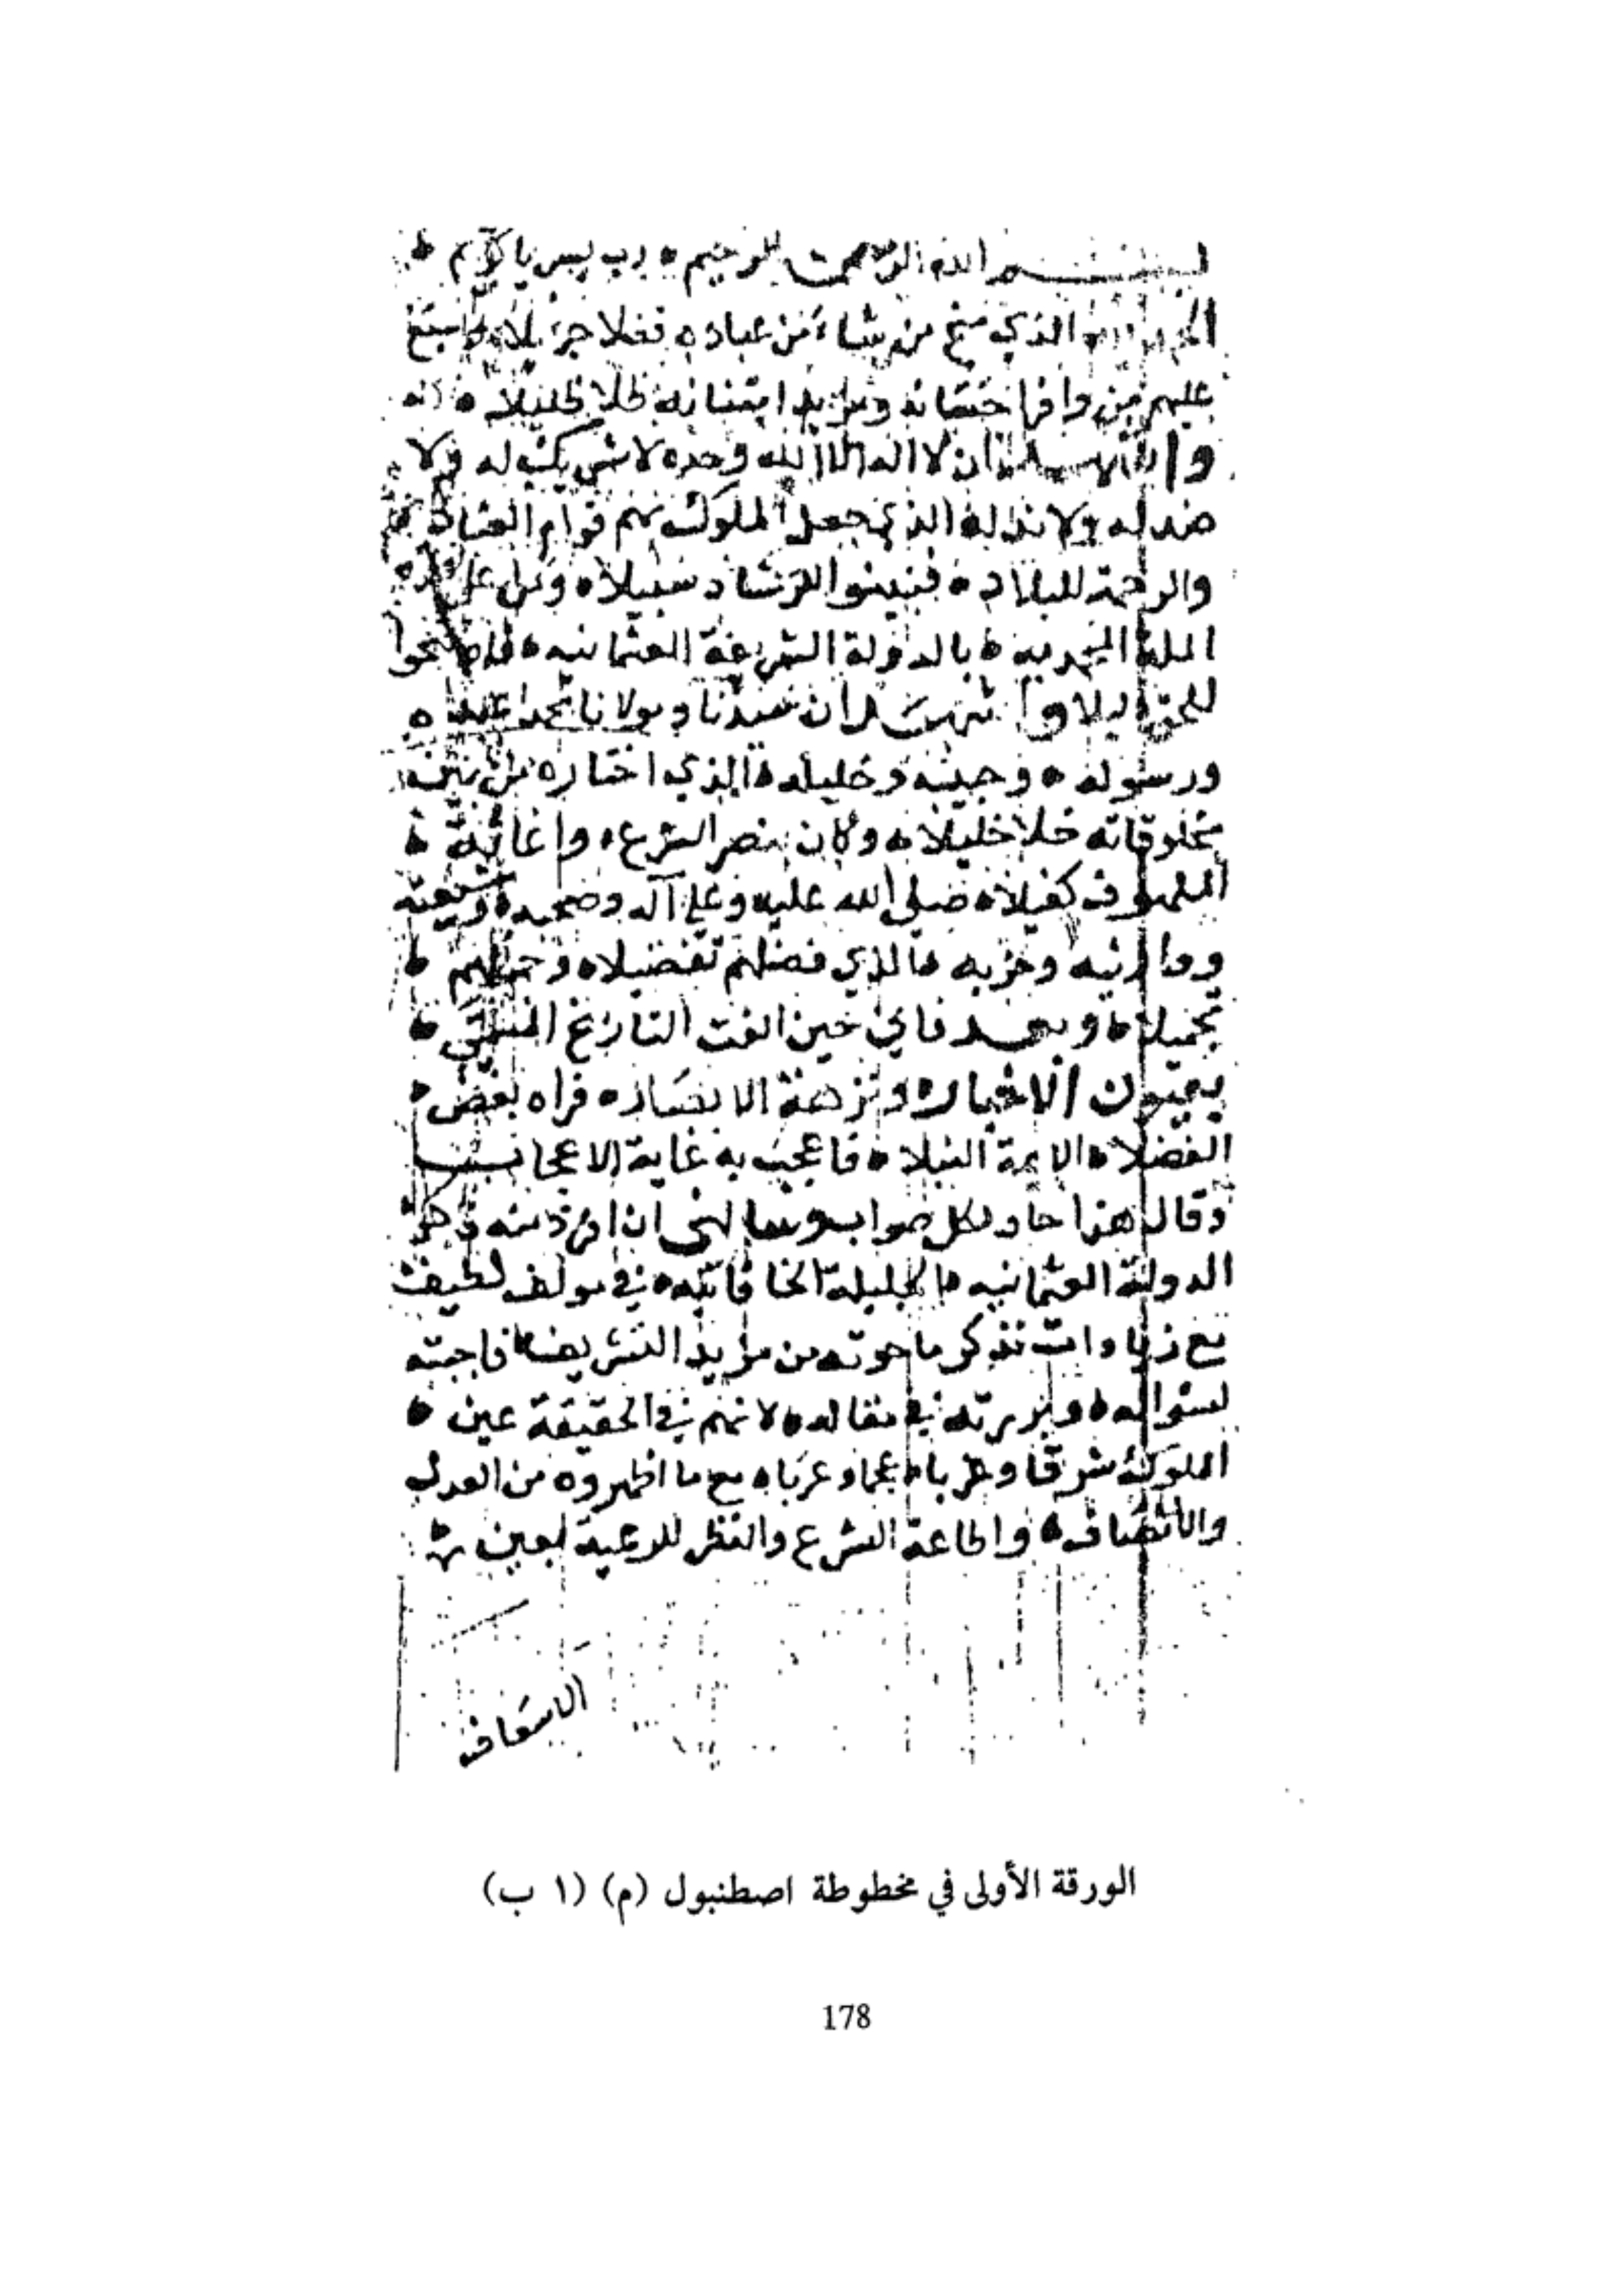 بسم الله الرحمن الرحيم ه رب يسر يا كريم ه
الحمد لله الذي منح من شاء من عباده فضلا جزيلا ه واسبغ
عليهم من وافر احسانه ومزيد امتنانه ظلا ظليلا ه
واشهد ان لا اله الا الله وحده لا شريك له ولا
ضد له ولا ند له الذي جعل الملوك بهم قوام العباد
والرحمة للبلاد ه فبينوا للرشاد سبيلا ه ومن على هذه
الملة المحمدية ه بالدولة الشريفة العثمانيه ه فاضحوا
للحق دليلا واشهد ان سيدنا ومولانا محمدا عبده ه
ورسوله ه وحبيبه وخليله ه الذي اختاره من بين
مخلوقاته خلا خليلا ه وكان بنصر الشرع ه واغاثة ه
الملهوف كفيلا ه صلى الله عليه وعلى آله وصحبه ه وشيعته
ووارثيه وحزبه ه الذي فضلهم تفضيلا ه وجملهم ه
تجميلا ه وبعد فاني حين الفت التاريخ المسمى ه
بعيون الاخبار ه ونزهة الابصار ه فراه بعض ه
الفضلا ه الايمة النبلا ه فاعجب به غاية الاعجاب
وقال هذا حاو لكل صواب وسالني ان افرد منه ذكر
الدولة العثمانيه ه الجليلة الخاقانيه ه في مولف لطيف
مع زيادات تذكر ما حوته من مزيد التشريف ه فاجبته
لسواله ه وبررته في مقاله ه لانهم في الحقيقة عين ه
الملوك شرقا وغربا ه عجما وعربا ه مع ما اظهروه من العدل
والانصاف ه واطاعة الشرع والنظر للرعية بعين
الاسعاف
الورقة الأولى في مخطوطة اصطنبول (م) (١ ب)
178